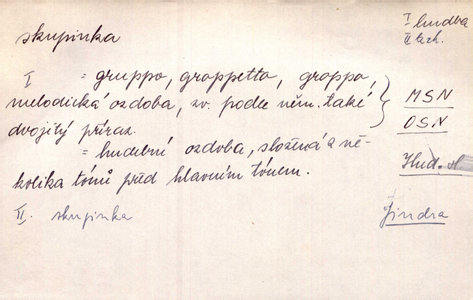 skupinka
I hudba
II tech.
I = gruppo, groppetto, groppo,
melodická ozdoba, zv. podle něm. také
dvojitý příraz.
MSN
OSN
= hudební ozdoba, složená z ně-
kolika tónů před hlavním tónem.
Hud. sl
II. skupinka
Jindra